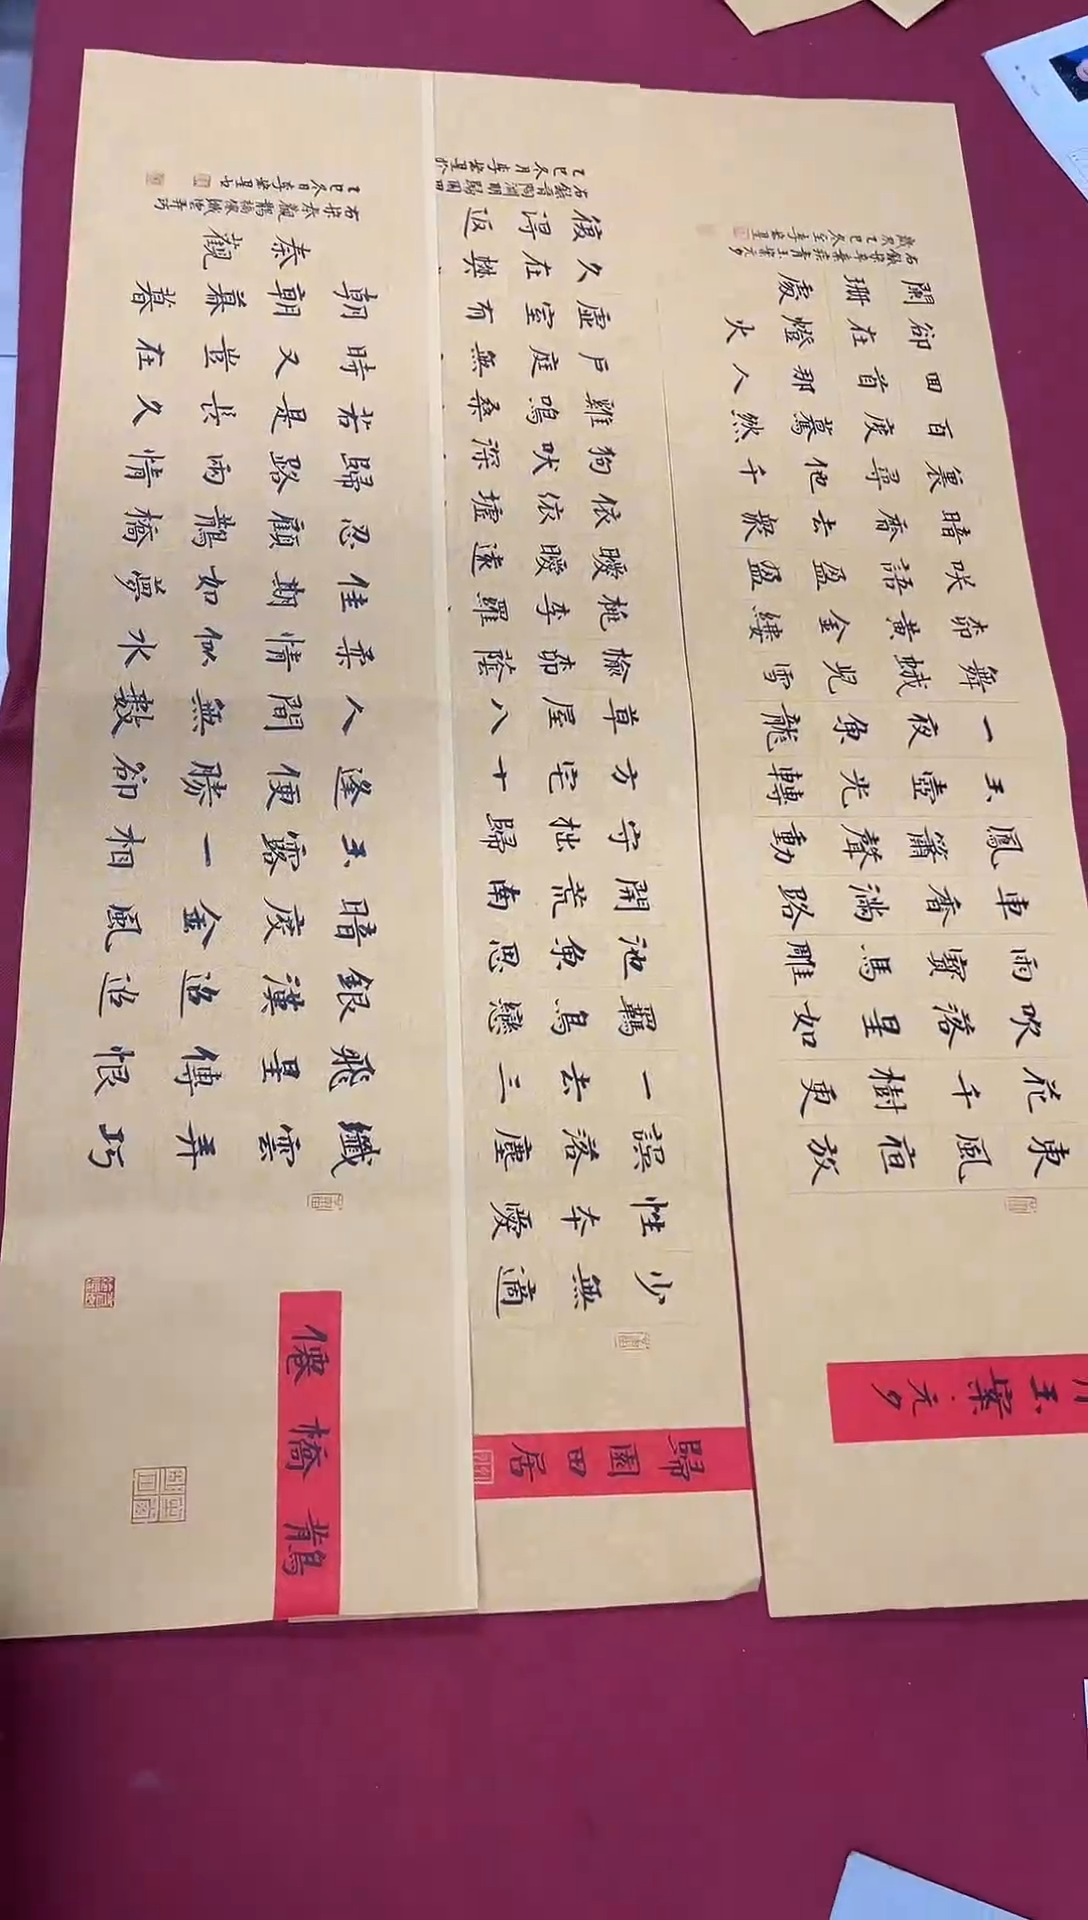 玉案 元夕
東風宿放
花千樹更
吹落星如
雨寶馬雕
車香滿路
鳳簫聲動
玉壺光轉
一夜魚龍
舞蛾兒雪
柳黃金縷
咲語盈盈
暗香去眾
裏尋他千
百度驀然
回首那人
卻在燈火
闌珊處
右錄辛棄疾青玉案元夕
歸園田居
少無適
性本愛
誤落塵
一去三
羈鳥戀
池魚思
開荒南
守拙歸
方宅十
草屋八
榆柳蔭
桃李羅
曖曖遠
依依墟
狗吠深
雞鳴桑
戶庭無
虛室有
久在樊
後得返
右錄晉陶淵明歸園田
乙巳冬月李
鵲橋僊
纖雲弄巧
飛星傳恨
銀漢迢迢
暗度金風
玉露一相
逢便勝卻
人間無數
柔情似水
佳期如夢
忍顧鵲橋
歸路兩情
若是長久
時又豈在
朝朝暮暮
秦觀
乙巳冬日李